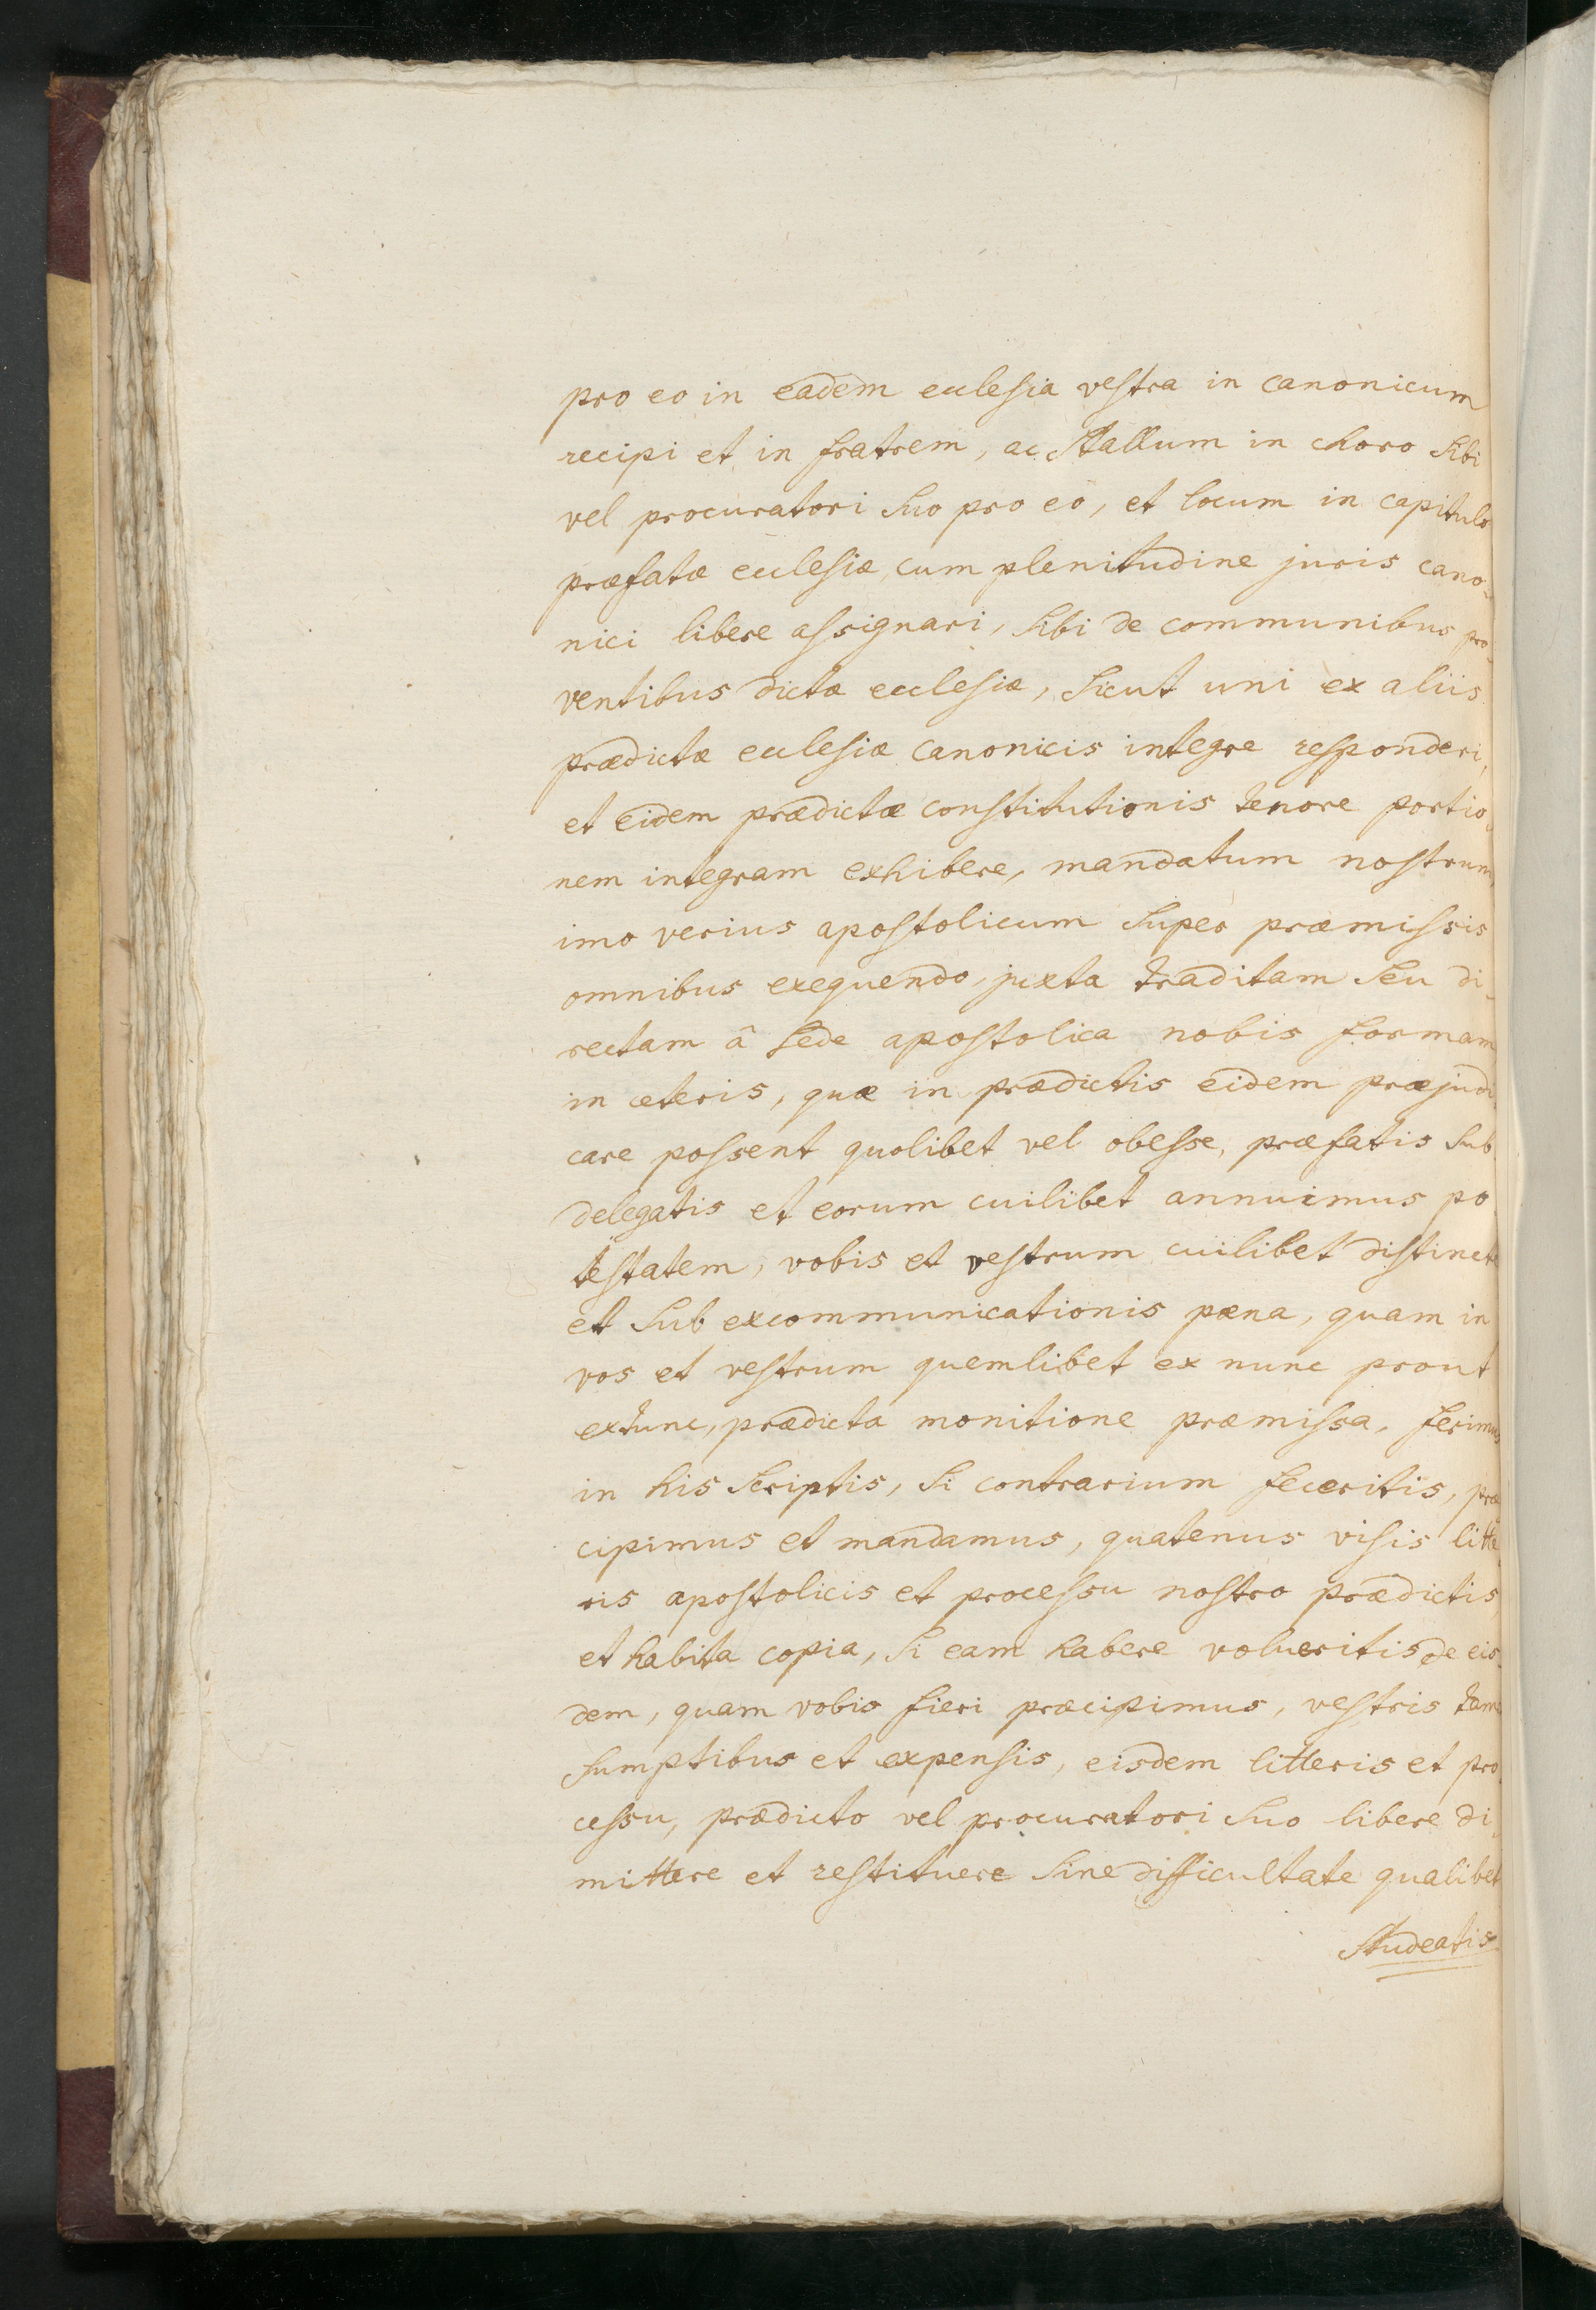 pro eo in eadem ecclesia vestra in canonicum
recipi et in fratrem, ac stallum in choro sibi
vel procuratori suo pro eo, et locum in capitulo
præfatæ ecclesiæ, cum plenitudine juris cano-
nici libere assignari, sibi de communibus pro-
ventibus dictæ ecclesiæ, sicut uni ex aliis
prædictæ ecclesiæ canonicis integre responderi,
et eidem prædictæ constitutionis tenore portio-
nem integram exhibere, mandatum nostrum,
imo verius apostolicum super præmissis
omnibus exequendo, juxta traditam seu di-
rectam â sede apostolica nobis formam
in ceteris, quæ in prædictis eidem præjudi-
care possent quolibet vel obesse, præfatis sub
delegatis et eorum cuilibet annuimus po
testatem, vobis et vestrum cuilibet distincte
et sub excommunicationis pæna, quam in
vos et vestrum quemlibet ex nunc prout
extunc, prædicta monitione præmissa, ferimus
in his scriptis, si contrarium feceritis, præ
cipimus et mandamus, quatenus visis litte
ris apostolicis et processu nostro prædictis,
et habita copia, si eam habere volueritis de eis-
dem, quam vobis fieri præcipimus, vestris tamen
sumptibus et expensis, eisdem litteris et pro
cessu, prædicto vel procuratori suo libere di-
mittere et restituere sine difficultate qualibet
studeatis